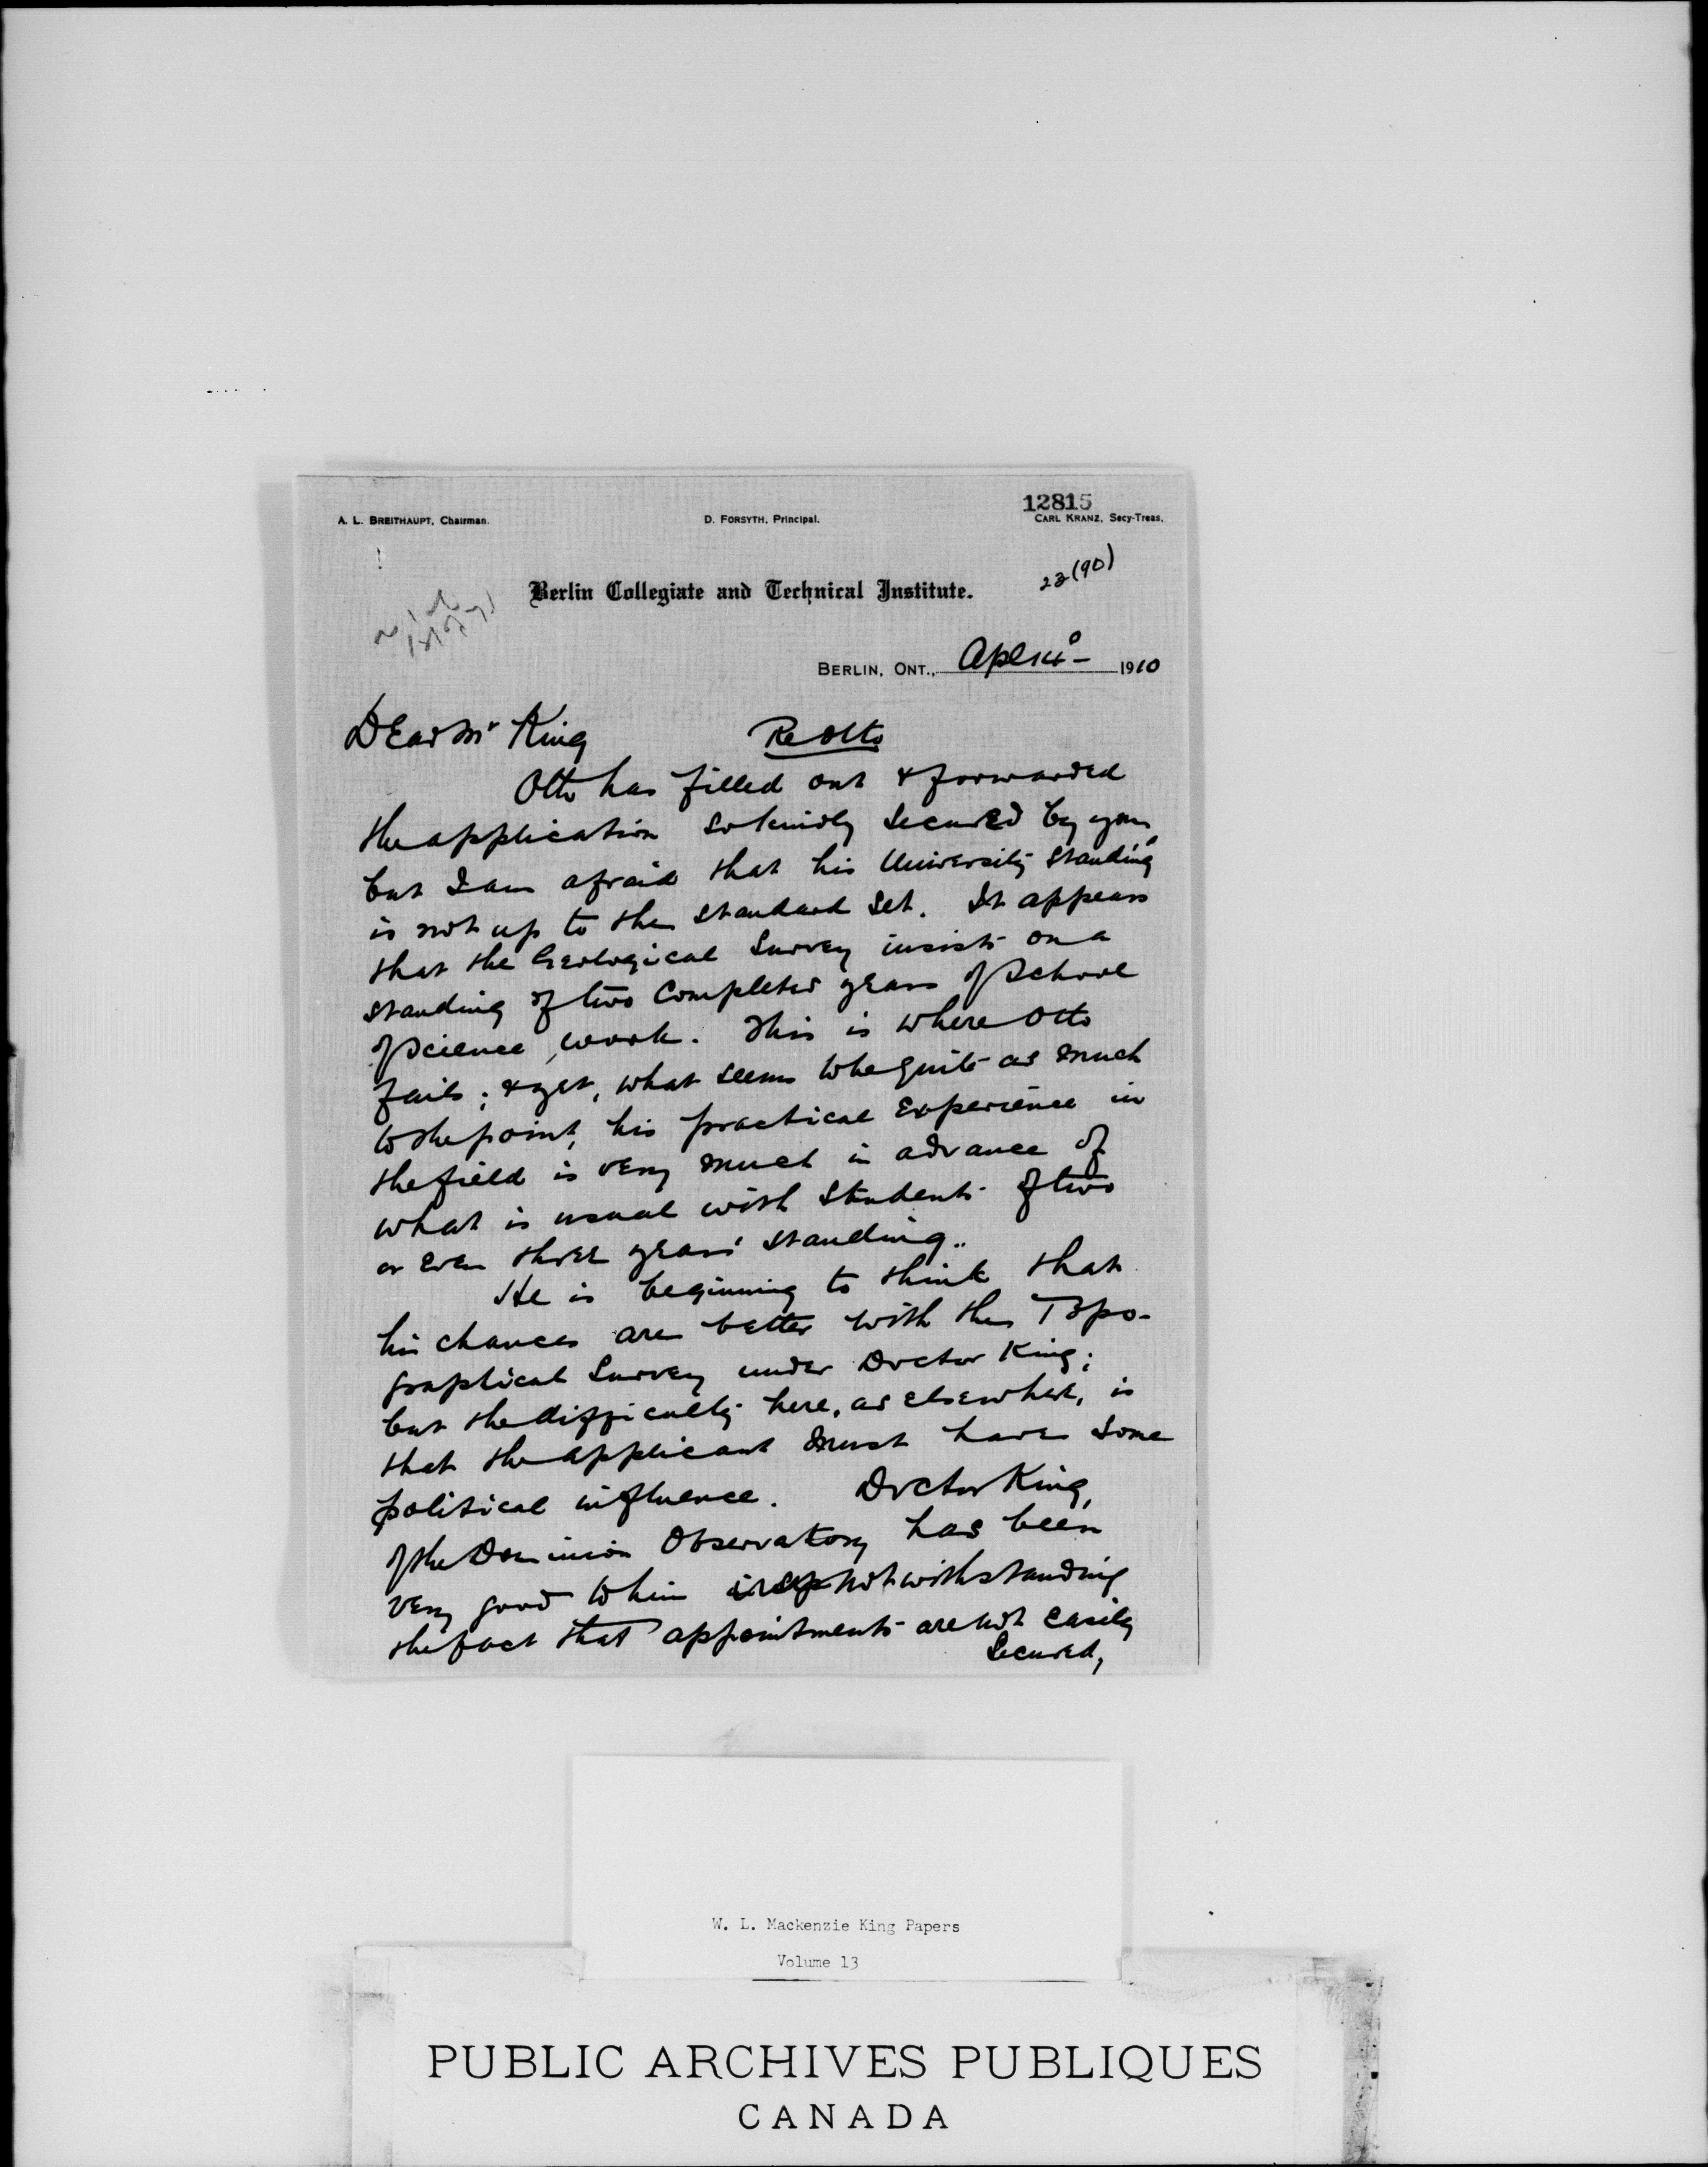 12815
A. L. BREITHAUPT, Chairman.
D. FORSYTH, Principal.
CARL KRANZ, Secy-Treas.
23(90)
Berlin Collegiate and Technical Institute.
BERLIN, ONT., Apl 14º - 1910
Dear Mr King
Re Otto
Otto has filled out & forwarded
the application so kindly secured by you,
but I am afraid that his University standing
is not up to the standard set. It appears
that the Geological Survey insists on a
standing of two completed years of School
of Science work. This is where Otto
fails; & yet, what seems to be quite as much
to the point, his practical experience in
the field is very much in advance of
what is usual with students of two
or even three years' standing..
He is beginning to think that
his chances are better with the Topo-
graphical Survey under Doctor King;
but the difficulty here, as elsewhere, is
that the applicant must have some
political influence. Doctor King,
of the Dominion Observatory has been
very good to him notwithstanding
the fact that appointments are not easily
secured,
W. L. Mackenzie King Papers
Volume 13
PUBLIC ARCHIVES PUBLIQUES
CANADA